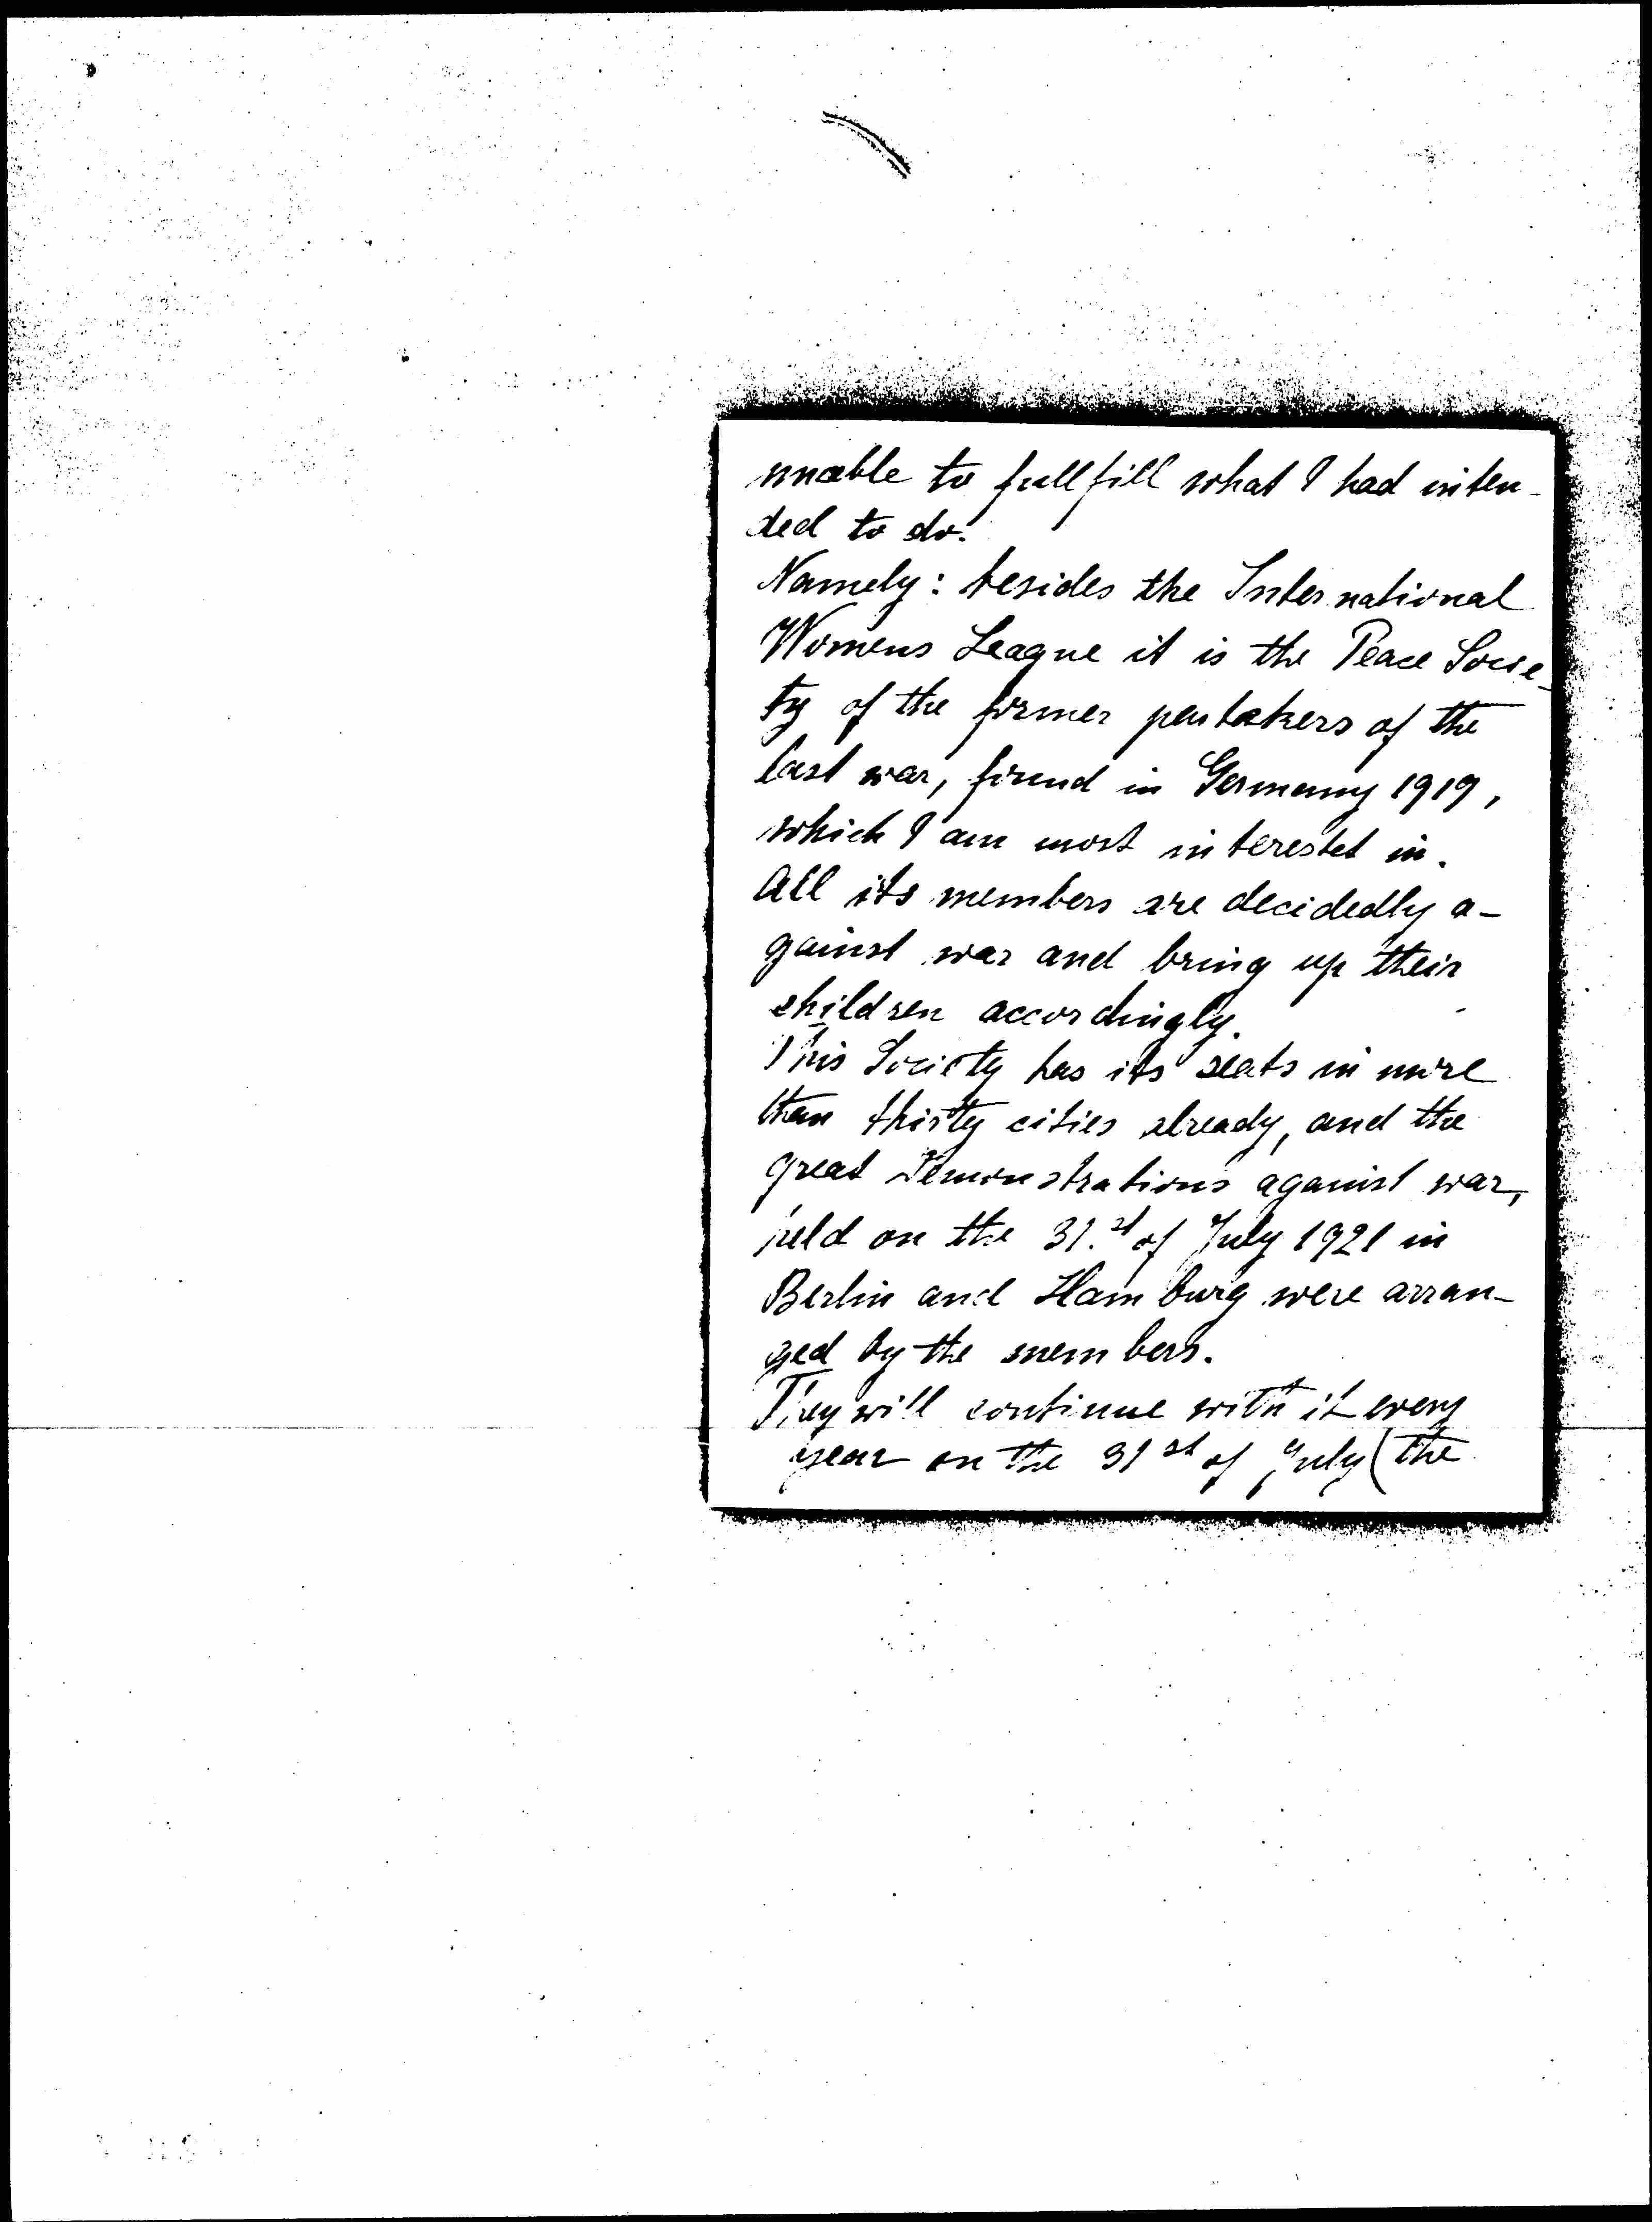 unable to fullfill what I had inten-
ded to do.
Namely: besides the International
Womens League it is the Peace Socie-
ty of the former partakers of the
last war, found in Germany 1919,
which I am most interestet in.
All its members are decidedly a-
gainst war and bring up their
children accordingly.
This Society has its seats in more
than thirty cities already, and the
great Demonstrations against war,
held on the 31.st of July 1921 in
Berlin and Hamburg were arran-
ged by the members.
They will continue with it every
year on the 31st of July (the